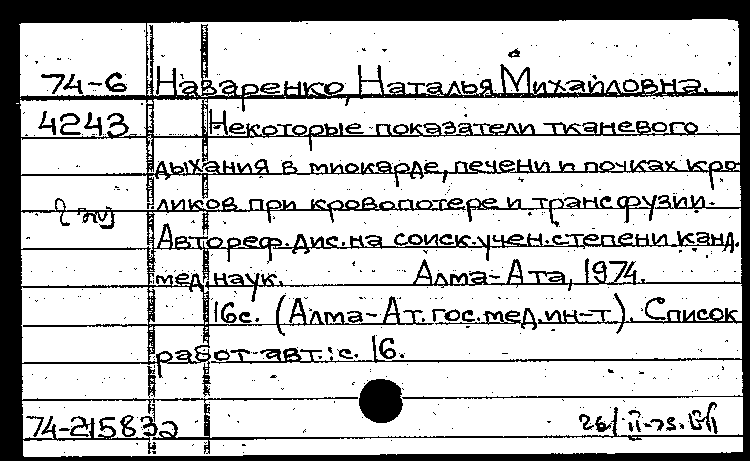 74-6 Назаренко, Наталья Михайловна.
4243 Некоторые показатели тканевого
дыхания в миокарде, печени и почках кро-
ликов при кровопотере и трансфузии.
Автореф. дис. на соиск. учен. степени канд.
мед. наук. Алма-Ата, 1974.
16с. (Алма-Ат. гос. мед. ин-т). Список
работ авт.: с. 16.
74-21583а 26/II-75.